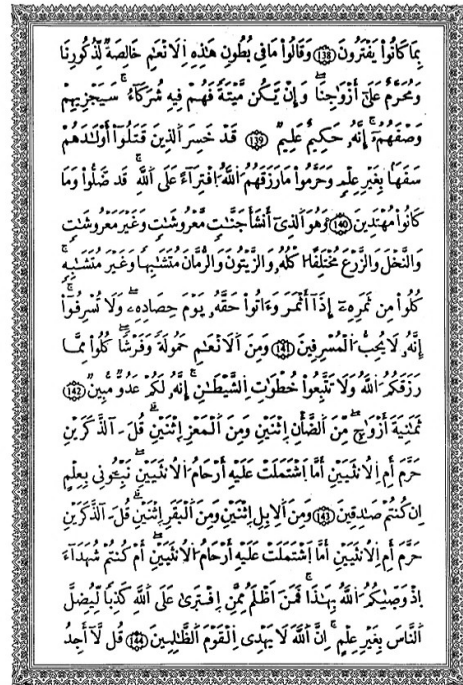 بِمَا كَانُواْ يَفْتَرُونَ 138 وَقَالُواْ مَا فِي بُطُونِ هَٰذِهِ اِلَانْعَٰمِ خَالِصَةٌ لِّذُكُورِنَا
وَمُحَرَّمٌ عَلَىٰٓ أَزْوَٰجِنَا وَإِنْ يَّكُن مَّيْتَةً فَهُمْ فِيهِ شُرَكَآءُ سَيَجْزِيهِمْ
وَصْفَهُمُۥٓ إِنَّهُۥ حَكِيمٌ عَلِيمٌ 139 قَدْ خَسِرَ اَلذِينَ قَتَلُوٓاْ أَوْلَٰدَهُمْ
سَفَهاً بِغَيْرِ عِلْمٍ وَحَرَّمُواْ مَا رَزَقَهُمُ اُللَّهُ اُفْتِرَآءً عَلَى اَللَّهِ قَد ضَّلُّواْ وَمَا
كَانُواْ مُهْتَدِينَ 140 وَهُوَ اَلذِىٓ أَنشَأَ جَنَّٰتٍ مَّعْرُوشَٰتٍ وَغَيْرَ مَعْرُوشَٰتٍ
وَالنَّخْلَ وَالزَّرْعَ مُخْتَلِفاً اكْلُهُۥ وَالزَّيْتُونَ وَالرُّمَّانَ مُتَشَٰبِهاً وَغَيْرَ مُتَشَٰبِهٍ
كُلُواْ مِن ثَمَرِهِۦٓ إِذَآ أَثْمَرَ وَءَاتُواْ حَقَّهُۥ يَوْمَ حِصَادِهِۦ وَلَا تُسْرِفُوٓاْ
إِنَّهُۥ لَا يُحِبُّ اُلْمُسْرِفِينَ 141 وَمِنَ اَلَانْعَٰمِ حَمُولَةً وَفَرْشاً كُلُواْ مِمَّا
رَزَقَكُمُ اُللَّهُ وَلَا تَتَّبِعُواْ خُطْوَٰتِ اِلشَّيْطَٰنِ إِنَّهُۥ لَكُمْ عَدُوٌّ مُّبِينٌ 142
ثَمَٰنِيَةَ أَزْوَٰجٍ مِّنَ اَلضَّأْنِ اِثْنَيْنِ وَمِنَ اَلْمَعْزِ اِثْنَيْنِ قُلَ ـ آلذَّكَرَيْنِ
حَرَّمَ أَمِ اِلُانثَيَيْنِ أَمَّا اَشْتَمَلَتْ عَلَيْهِ أَرْحَامُ اُلُانثَيَيْنِ نَبِّـُٔونِى بِعِلْمٍ
اِن كُنتُمْ صَٰدِقِينَ 143 وَمِنَ اَلِابِلِ اِثْنَيْنِ وَمِنَ اَلْبَقَرِ اِثْنَيْنِ قُلَ ـ آلذَّكَرَيْنِ
حَرَّمَ أَمِ اِلُانثَيَيْنِ أَمَّا اَشْتَمَلَتْ عَلَيْهِ أَرْحَامُ اُلُانثَيَيْنِ أَمْ كُنتُمْ شُهَدَآءَ
اِذْ وَصَّيٰكُمُ اُللَّهُ بِهَٰذَا فَمَنَ اَظْلَمُ مِمَّنِ اِفْتَرَىٰ عَلَى اَللَّهِ كَذِباً لِّيُضِلَّ
اَلنَّاسَ بِغَيْرِ عِلْمٍ اِنَّ اَللَّهَ لَا يَهْدِى اِلْقَوْمَ اَلظَّٰلِمِينَ 144 قُل لَّآ أَجِدُ